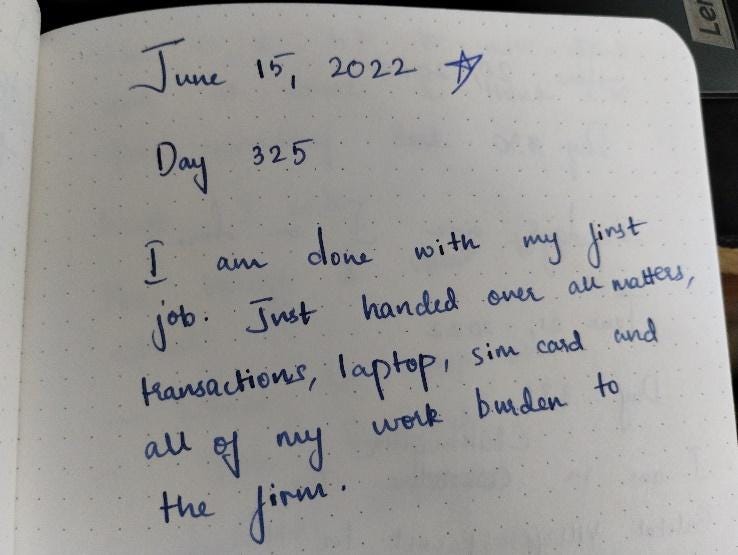 June 15, 2022
Day 325
I am done with my first
job. Just handed over all matters,
transactions, laptop, sim card and
all of my work burden to
the firm.
Len